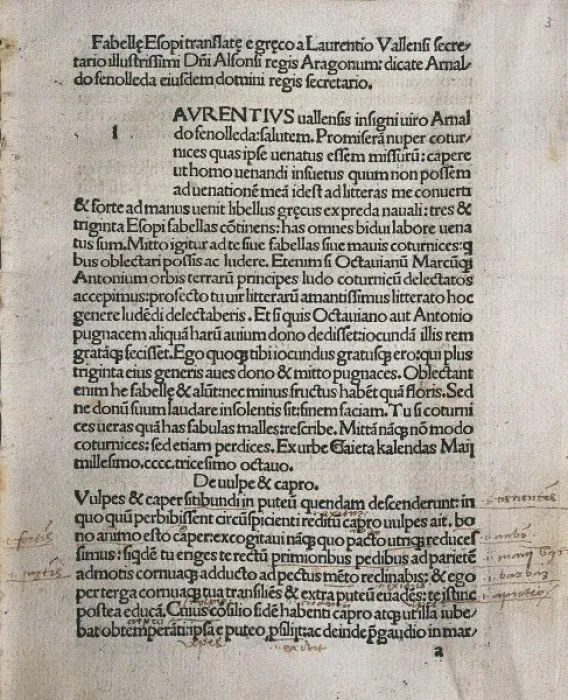 3
Fabellę Esopi translatę e gręco a Laurentio Vallensi secre⸗
tario illustrissimi Dñi Alfonsi regis Aragonum: dicate Arnal⸗
do fenolleda eiusdem domini regis secretario.
l
AVRENTIVS uallensis insigni uiro Arnal
do fenolleda: salutem. Promiserã nuper cotur⸗
nices quas ipse uenatus essem missurũ: capere
ut homo uenandi insuetus quum non possem
ad uenationẽ meã idest ad litteras me conuerti
& forte ad manus uenit libellus gręcus ex preda nauali: tres &
triginta Esopi fabellas cõtinens: has omnes bidui labore uena
tus sum. Mitto igitur ad te siue fabellas siue mauis coturnices: q
bus oblectari possis ac ludere. Etenim si Octauianũ Marcũq;
Antonium orbis terrarũ principes ludo coturnicũ delectatos
accepimus: profecto tu uir litterarũ amantissimus litterato hoc
genere ludẽdi delectaberis. Et si quis Octauiano aut Antonio
pugnacem aliquã harũ auium dono dedisset: iocundã illis rem
gratãq; fecisset. Ego quoq; tibi iocundus gratusq; ero: qui plus
triginta eius generis aues dono & mitto pugnaces. Oblectant
enim he fabellę & alũt: nec minus fructus habẽt quã floris. Sed
ne donũ suum laudare insolentis sit: finem faciam. Tu si coturni
ces ueras quã has fabulas malles: rescribe. Mittã nãq; nõ modo
coturnices: sed etiam perdices. Ex urbe Gaieta kalendas Maij
millesimo.cccc.tricesimo octauo.
De uulpe & capro.
Vulpes & caper sitibundi in puteũ quendam descenderunt: in
quo quũ perbibissent circũspicienti reditũ capro uulpes ait. bo
no animo esto caper: excogitaui nãq; quo pacto utriq; reduces
simus: siqdẽ tu eriges te rectũ primoribus pedibus ad parietẽ
admotis cornuaq; adducto ad pectus mẽto reclinabis: & ego
per terga cornuaq; tua transiliẽs & extra puteũ euadẽs: te istinc
postea educã. Cuius cõsilio fidẽ habenti capro atq; ut illa iube⸗
bat obtemperãti: ipsa e puteo psilijt: ac deinde p̃ gaudio in mar⸗
a